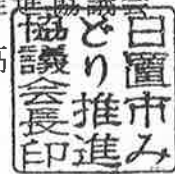 日置市み
どり推進
協議会長印